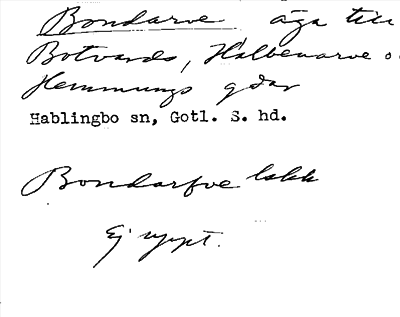 Bondarve äga till
Botvards, Halbenarve o
Hemmungs gdar
Hablingbo sn, Gotl. S. hd.
Bondarfve
Ej uppt.